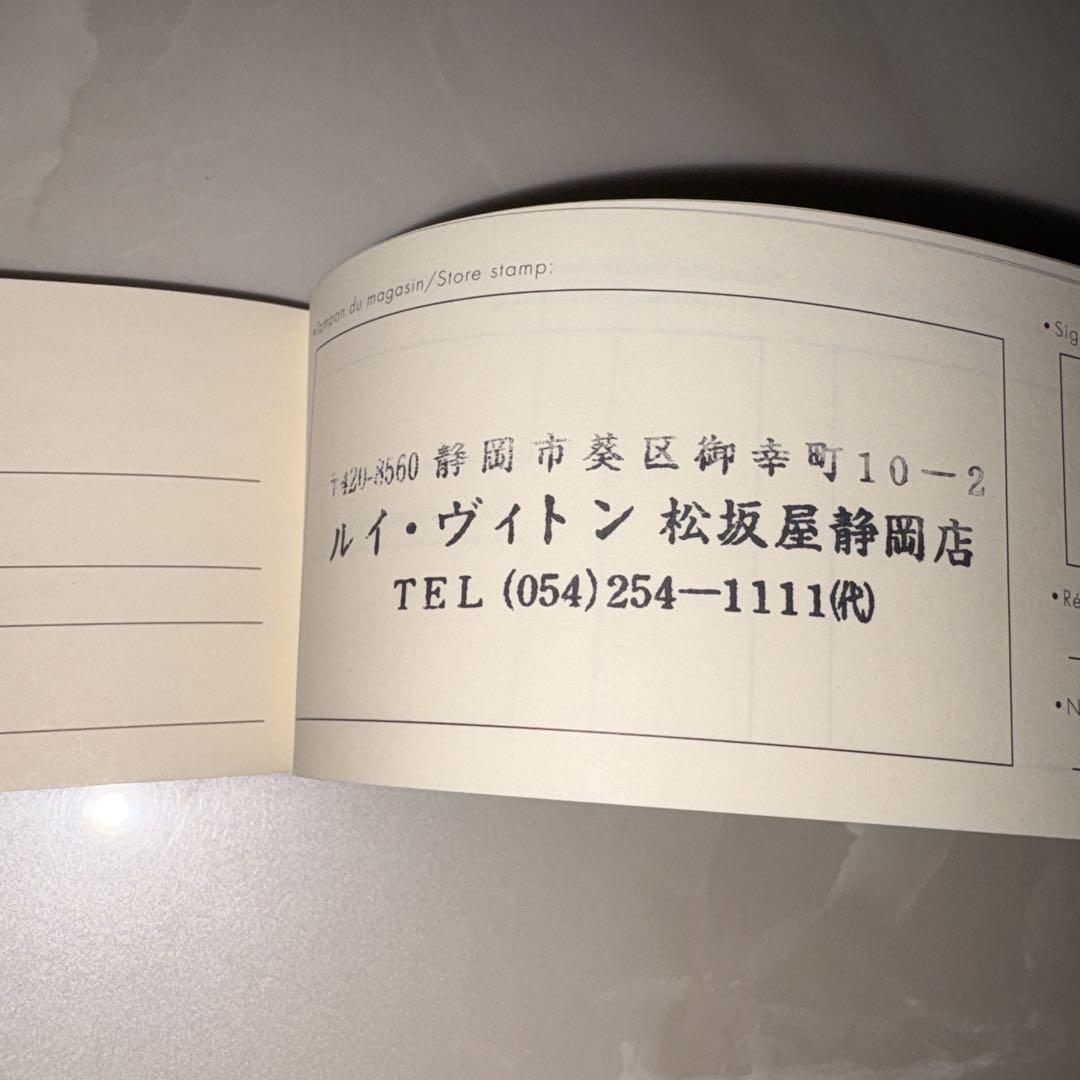 •Tampon du magasin/Store stamp:
〒420-8560 静岡市葵区御幸町10-2
ルイ・ヴィトン 松坂屋静岡店
TEL (054)254-1111(代)
•Sig
•Ré
•N